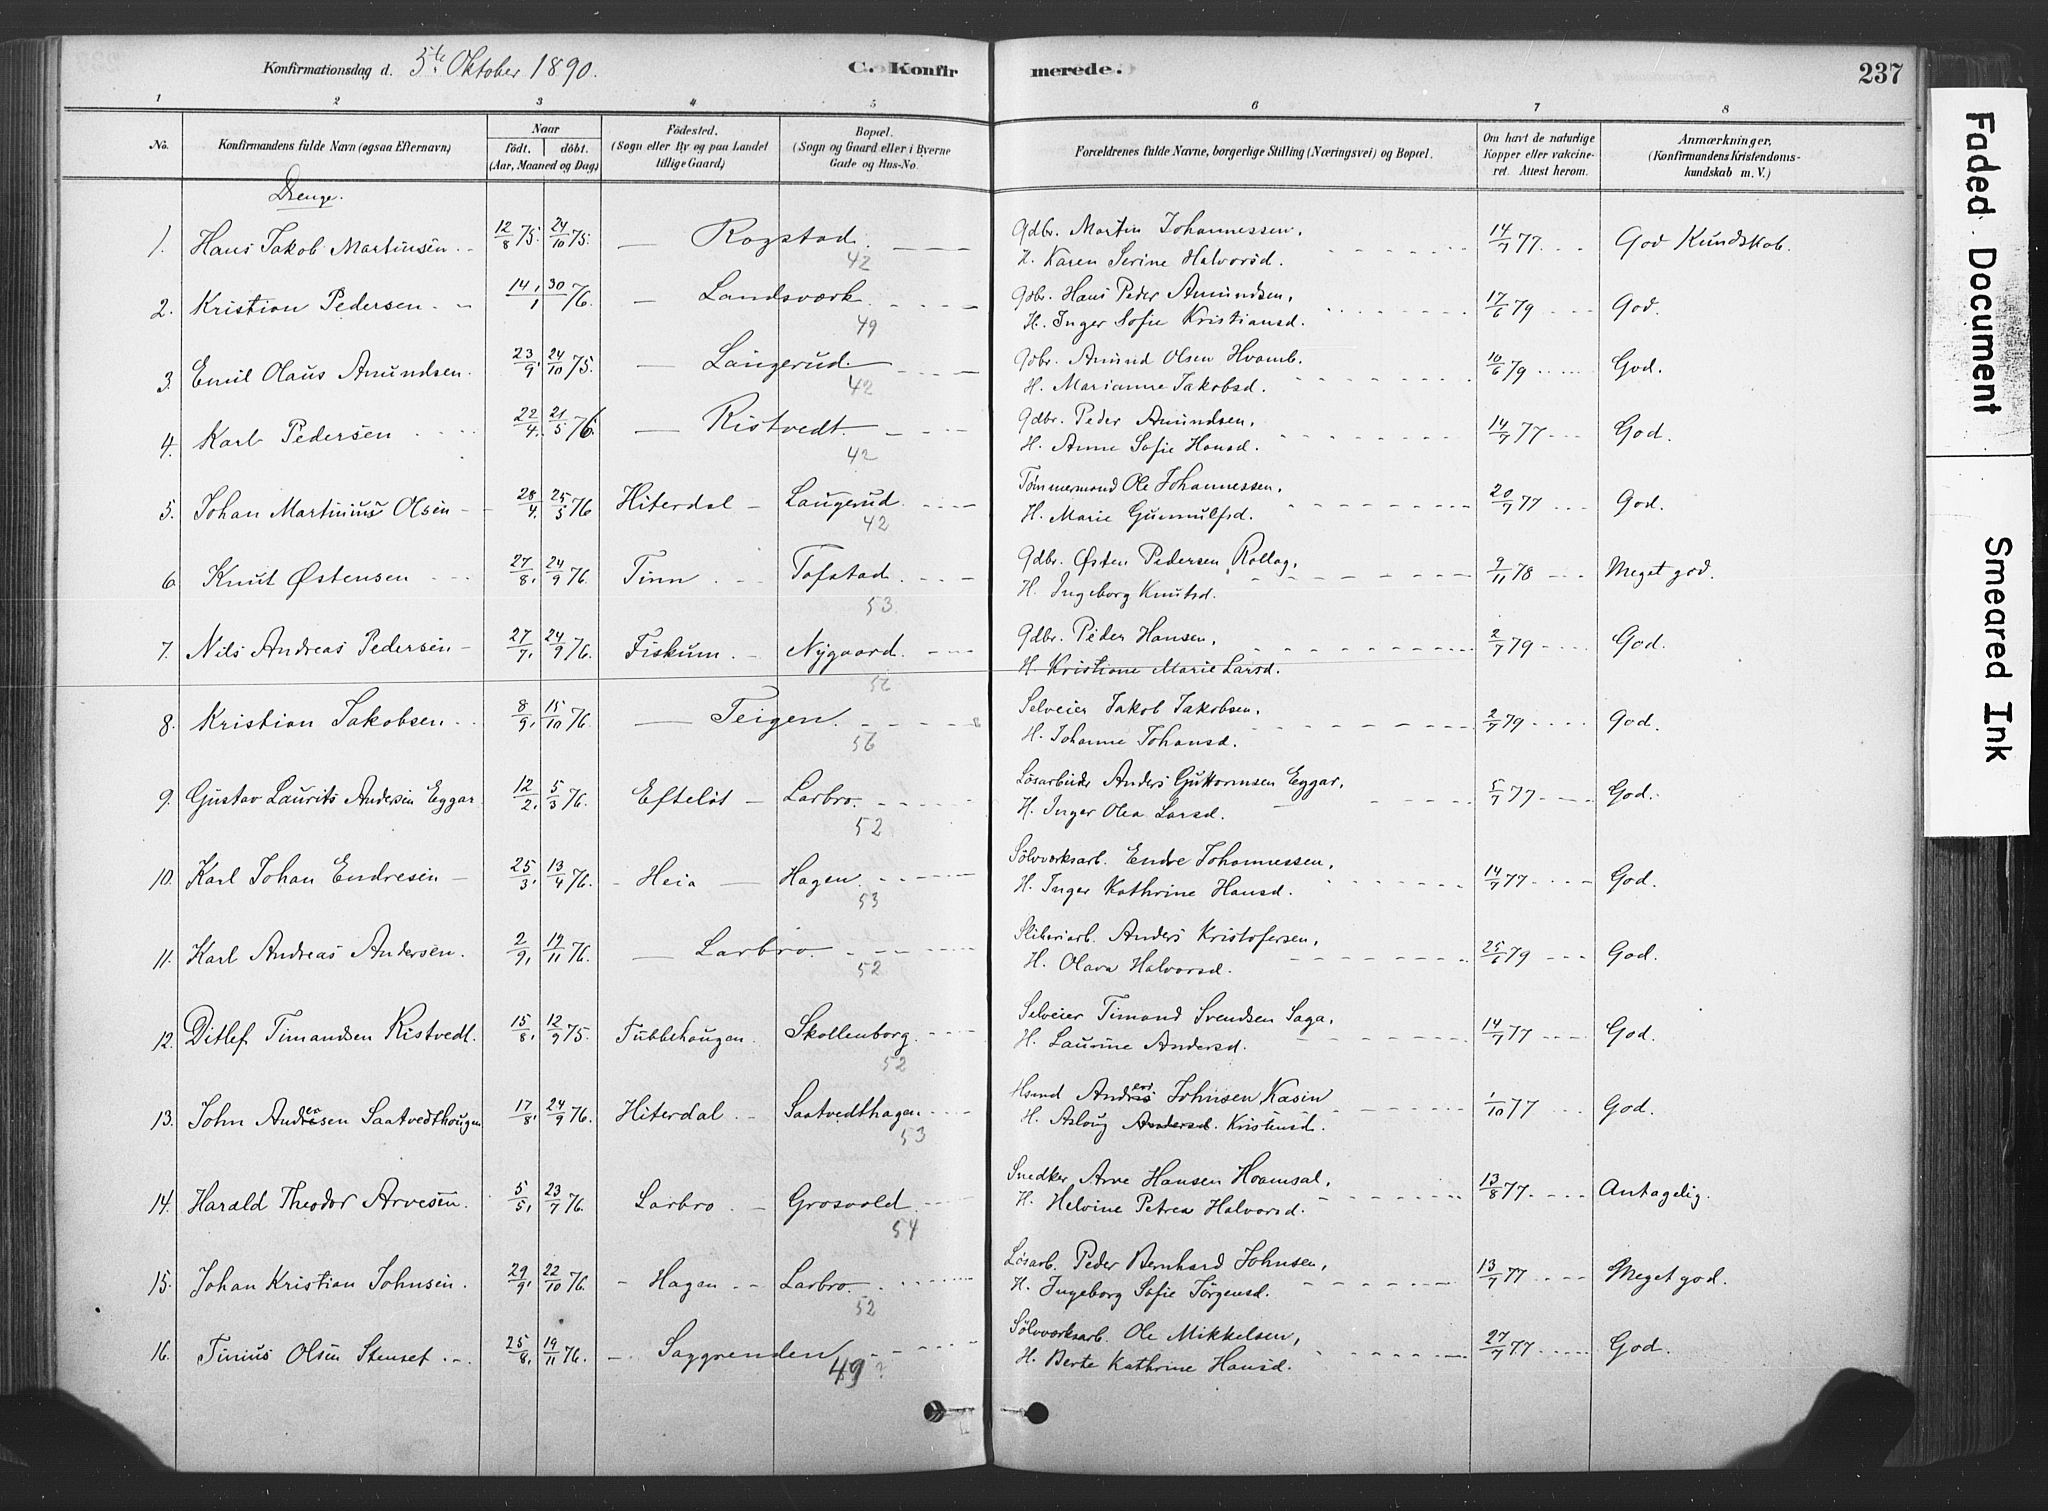 Konfirmationsdag d. 5te Oktober 1890. C. Konfirmerede. 237
1 2 3 4 5 6 7 8
No. Konfirmandens fulde Navn (ogsaa Efternavn) Naar født. døbt. (Aar, Maaned og Dag) Fødested. (Sogn eller By og paa Landet tillige Gaard) Bopæl. (Sogn og Gaard eller i Byerne Gade og Hus-No. Forældrenes fulde Navne, borgerlige Stilling (Næringsvei) og Bopæl. Om havt de naturlige Kopper eller vakcineret. Attest herom. Anmærkninger, (Konfirmandens Kristendomskundskab m. V.)
Drenge.
1. Hans Jakob Martinsen 12/8 75. 24/10 75. — Rogstad. 42 Gdbr. Martin Johannessen, 14/7 77 God Kundskab.
H. Karen Serine Halvorsd.
2. Kristian Pedersen 14/1 30/1 76. — Landsværk 49 Gdbr. Hans Peder Amundsen, 17/6 79 God.
H. Inger Sofie Kristiansd.
3. Emil Olaus Amundsen. 23/9. 24/10 75. — Langerud 42 Gdbr. Amund Olsen Hvamb. 10/6 79 God.
H. Marianne Jakobsd.
4. Karl Pedersen 22/4. 21/5 76. — Ristvedt. 42 Gdbr. Peder Amundsen, 14/7 77 God.
H. Anne Sofie Hansd.
5. Johan Martinius Olsen 28/4. 25/5 76 Hiterdal — Langerud. 42 Tømmermand Ole Johannessen, 20/7 77 God.
H. Marie Gunnulfsd.
6. Knut Østensen 27/8. 24/9 76. Tinn — Tofstad. 53. Gdbr. Østen Pedersen, Rollag, 9/11 78 Meget god.
H. Ingeborg Knutsd.
7. Nils Andreas Pedersen 27/7. 24/9 76. Fiskum. — Nygaard. 56 Gdbr. Peder Hansen, 2/7 79 God.
H. Kristiane Marie Larsd.
8. Kristian Jakobsen 8/9. 15/10 76. — Teigen. 56 Selveier Jakob Jakobsen, 2/7 79 God.
H. Johanne Johansd.
9. Gustav Laurits Andersen Eggar. 12/2. 5/3 76. Efteløt — Larbro. 52 Løsarbeider Anders Guttormsen Eggar, 5/7 77 God.
H. Inger Olea Larsd.
10. Karl Johan Endresen 25/3. 13/4 76. Heia — Hagen. 53 Sølvverksarb. Endre Johannessen, 14/7 77 God.
H. Inger Kathrine Hansd.
11. Karl Andreas Andersen. 2/9. 19/11 76. — Larbro. 52 Sliberiarb. Anders Kristofersen, 25/6 79 God.
H. Olava Halvorsd.
12. Ditlef Timandsen Ristvedt. 15/8. 12/9 75. Tubbehaugen Skollenborg. 52 Selveier Timand Svendsen Saga, 14/7 77 God.
H. Laurine Andersd.
13. John Andersen Saatvedthaugen 17/8. 24/9 76. Hiterdal. — Saatvedthagen 53 Hsmd Anders Johnsen Kasin 1/10 77 God.
H. Aslaug Andersd. Kristensd.
14. Harald Theodor Arvesen. 5/5. 23/7 76. Larbro. — Grosvold. 54 Snedker Arve Hansen Hvamsal, 13/8 77 Antagelig.
H. Helvine Petrea Halvorsd.
15. Johan Kristian Johnsen. 29/9. 22/10 76. Hagen — Larbro. 52 Løsarb. Peder Bernhard Johnsen, 13/7 77 Meget god.
H. Ingeborg Sofie Jørgensd.
16. Tinius Olsen Stenset 25/8. 19/11 76. — Saggrenden 49? Sølvværksarb. Ole Mikkelsen, 27/7 77 God.
H. Berte Kathrine Hansd.
Faded Document
Smeared Ink